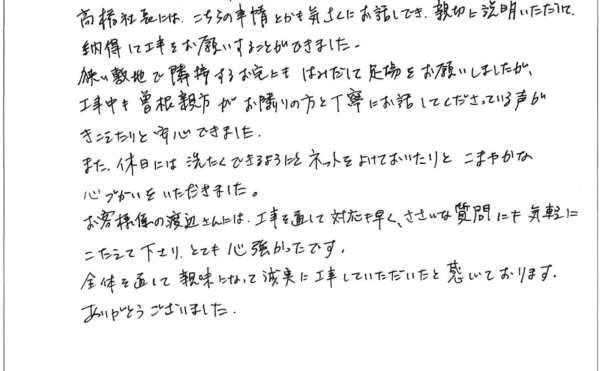 高橋社長には、こちらの事情とかも気さくにお話しでき、親切に説明いただいて、
納得して工事をお願いすることができました。
狭い敷地で隣接するお宅にもはみだして足場をお願いしましたが、
工事中も曽根親方がお隣りの方と丁寧にお話してくださっている声が
きこえたりと安心できました.
また、休日には洗たくできるようにとネットをよけておいたりとこまやかな
心づかいをいただきました。
お客様係の渡辺さんには、工事を通して対応も早く、ささいな質問にも気軽に
こたえて下さり、とても心強かったです。
全体を通して親味になって誠実に工事していただいたと感じております.
ありがとうございました.